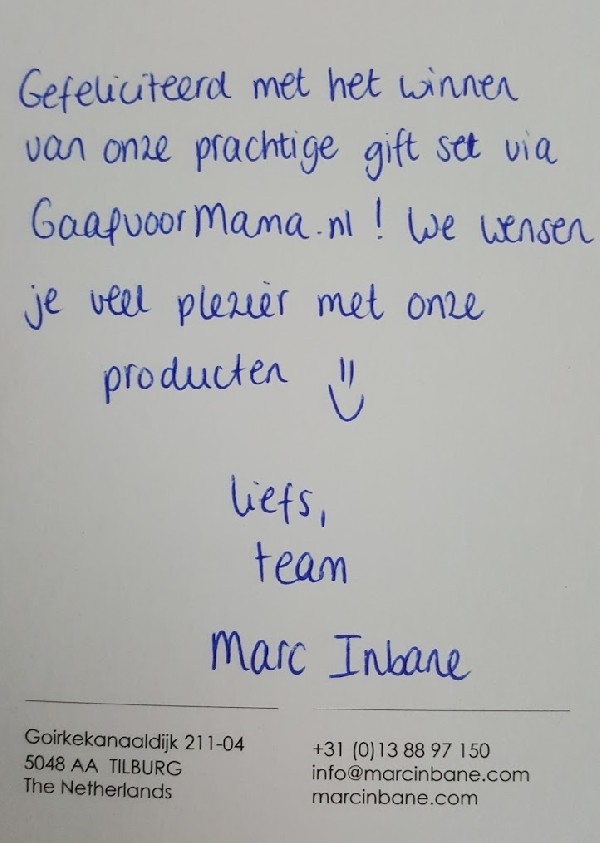 Gefeliciteerd met het winnen
van onze prachtige gift set via
GaafvoorMama.nl! We wensen
je veel plezier met onze
producten
liefs,
team
Marc Inbane
Goirkekanaaldijk 211-04
5048 AA TILBURG
The Netherlands
+31 (0)13 88 97 150
info@marcinbane.com
marcinbane.com